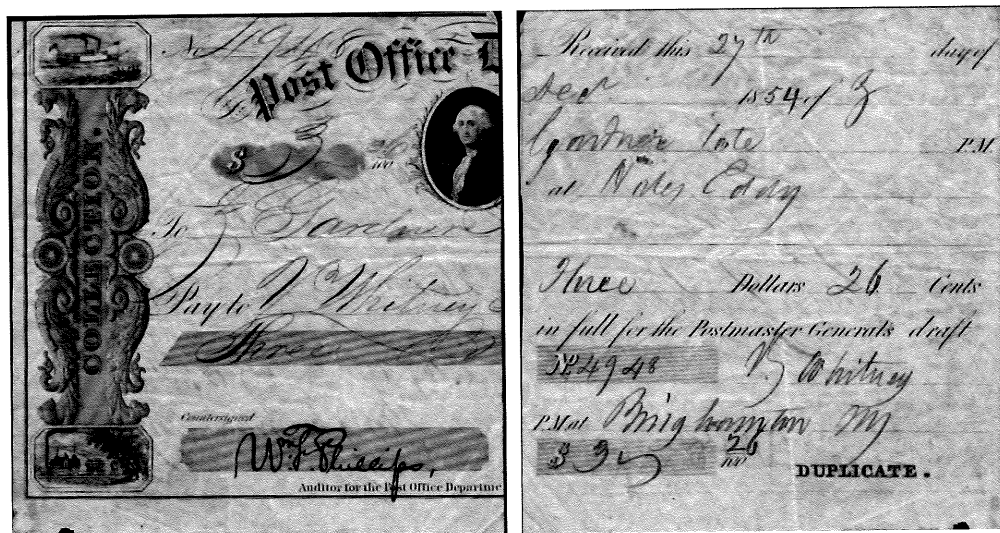 No 4948
Post Office D
$ 3 26/100
COLLECTION.
To Z Gardner
Pay to V Whitney
Three
Countersigned
Wm F Phillips,
Auditor for the Post Office Departme
Received this 27th day of
Dec 1854 of Z
Gardner late P.M.
at Hales Eddy
Three Dollars 26 Cents
in full for the Postmaster Generals draft
No 4948 V Whitney
P.M. at Binghamton NY
$ 3 26/100
DUPLICATE.